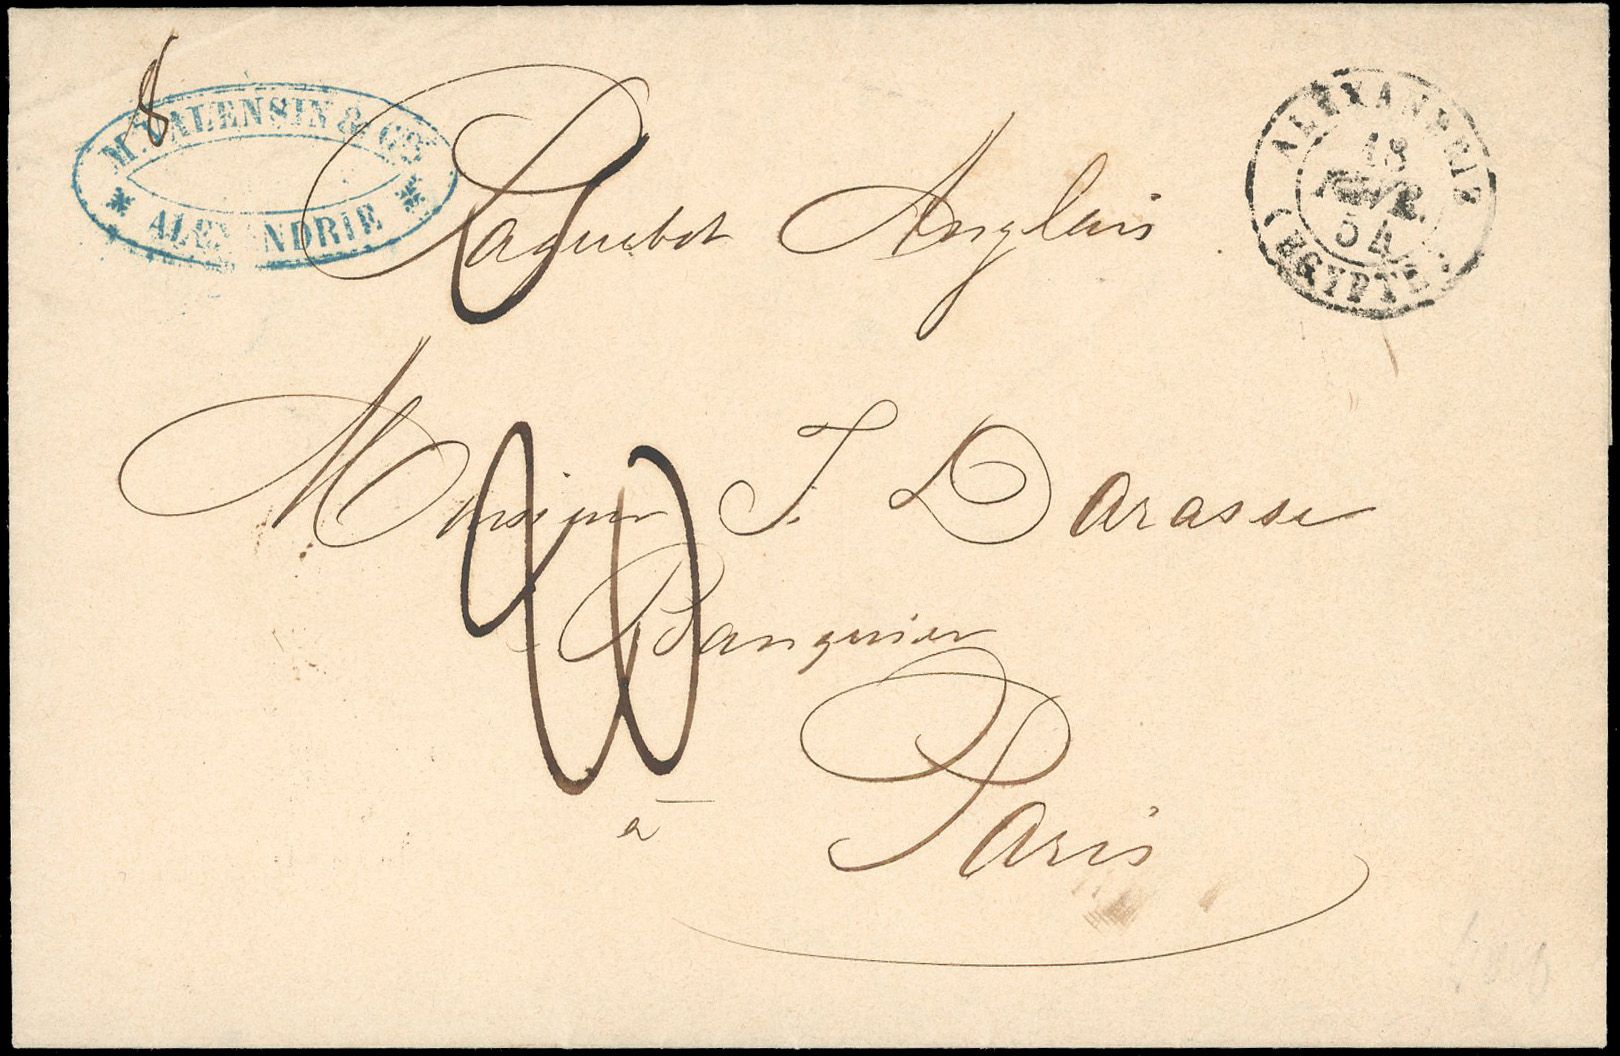 8
M. VALENSIN & CO
ALEXANDRIE
Paquebot Anglais
ALEXANDRIE
18
54
( EGYPTE )
Monsieur J. Darasse
20
Banquier
à Paris